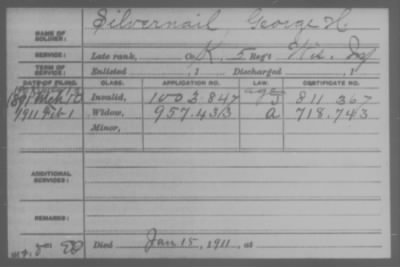 NAME OF SOLDIER: Silvernail, George H.
SERVICE: Late rank, Co. K, 5 Reg't Wis. Inf
TERM OF SERVICE: Enlisted , 1 Discharged , 1
DATE OF FILING. CLASS. APPLICATION NO. LAW. CERTIFICATE NO.
1891 Mch 10 Invalid, 1003.847 J 811.367
1911 Feb 1 Widow, 957.433 a 718.743
Minor,
ADDITIONAL SERVICES:
REMARKS:
Died Jan 15, 1911, at